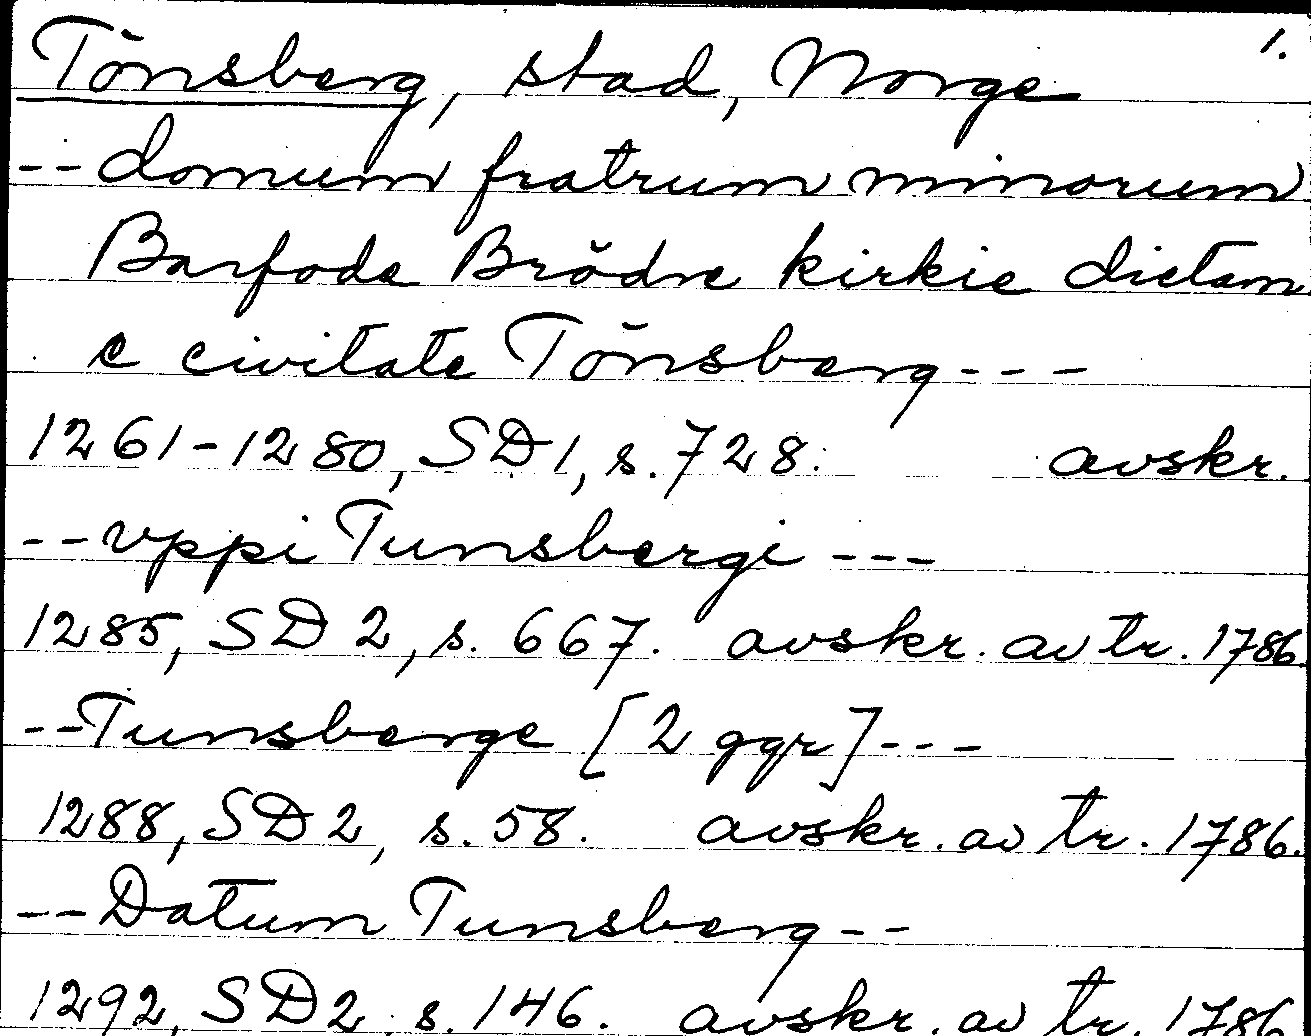 1.
Tönsberg, stad, Norge
-- domum fratrum minorum
Barfode Brödre kirkie dictam
e civitate Tönsberg ---
1261-1280, SD 1, s. 728. avskr.
-- vppi Tunsbergi ---
1285, SD 2, s. 667. avskr. av tr. 1786.
-- Tunsberge [2 ggr] ---
1288, SD 2, s. 58. avskr. av tr. 1786.
-- Datum Tunsberg --
1292, SD 2, s. 146. avskr. av tr. 1786